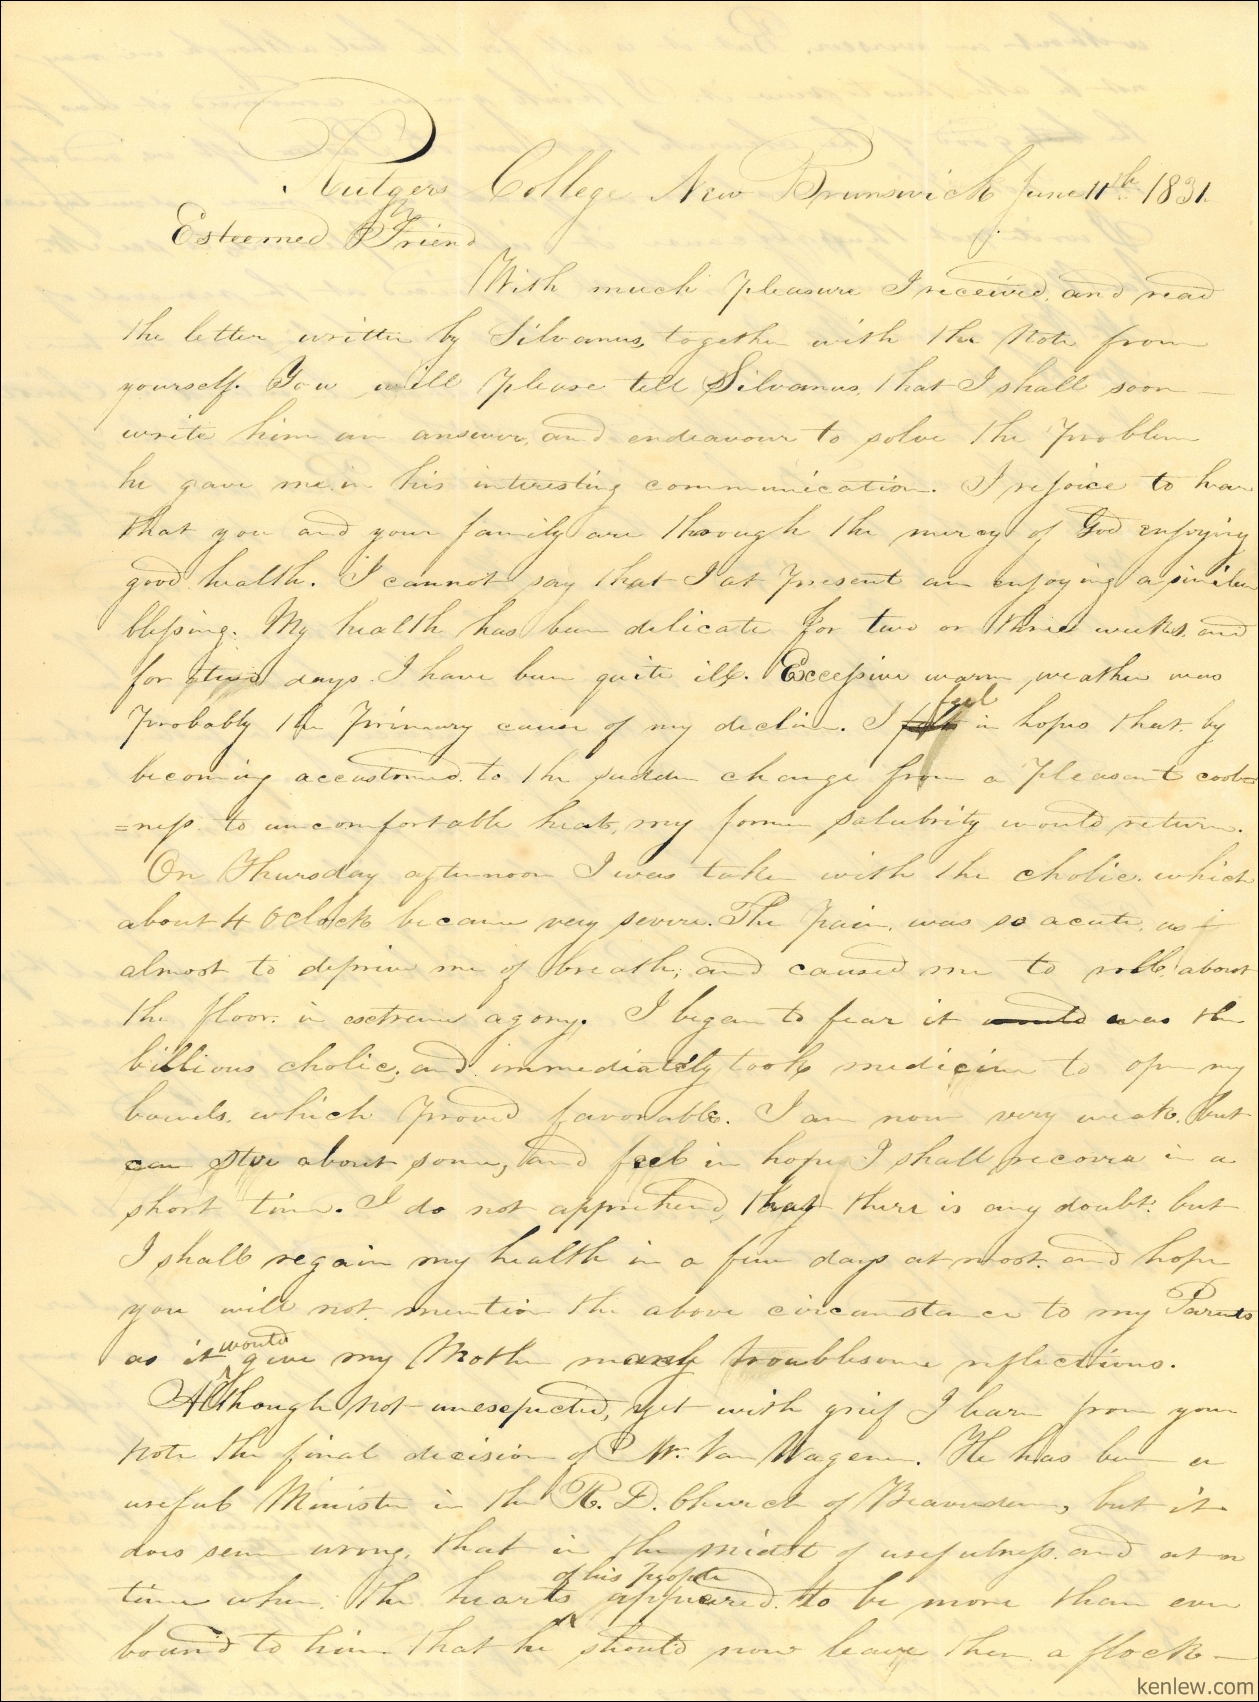 Rutgers College New Brunswick June 11th 1831.
Esteemed Friend
With much pleasure I received and read
the letter written by Silvanus, together with the Note from
yourself. You will please tell Silvanus, that I shall soon
write him an answer, and endeavour to solve the problem
he gave me in his interesting communication. I rejoice to hear
that you and your family are through the mercy of God enjoying
good health. I cannot say that I at present am enjoying a similar
blessing. My health has been delicate for two or three weeks, and
for days I have been quite ill. Excessive warm weather was
probably the primary cause of my decline. I feel in hopes that by
becoming accustomed to the sudden change from a pleasant cool=
=ness to uncomfortable heat, my former salubrity would return.
On Thursday afternoon I was taken with the cholic, which
about 4 Oclock became very severe. The pain, was so acute, as
almost to deprive me of breath; and caused me to roll about
the floor in extreme agony. I began to fear it was the
billious cholic; and immediately took medicine to open my
bowels, which proved favorable. I am now very weak, but
can about some, and feel in hope I shall recover in a
short time. I do not apprehend, that there is any doubt but
I shall regain my health in a few days at most and hope
you will not mention the above circumstance to my Parents
as it would give my Mother many troublesome reflections.
Although not unexpected, yet with grief I learn from your
note the final decision of Mr. Van Wagenen. He has been a
useful Minister in the R. D. Church of Beaverdam, but it
does seem wrong, that in the midst of usefulness and at a
time when the hearts of his people appeared to be more than ever
bound to him that he should now leave them a flock
kenlew.com